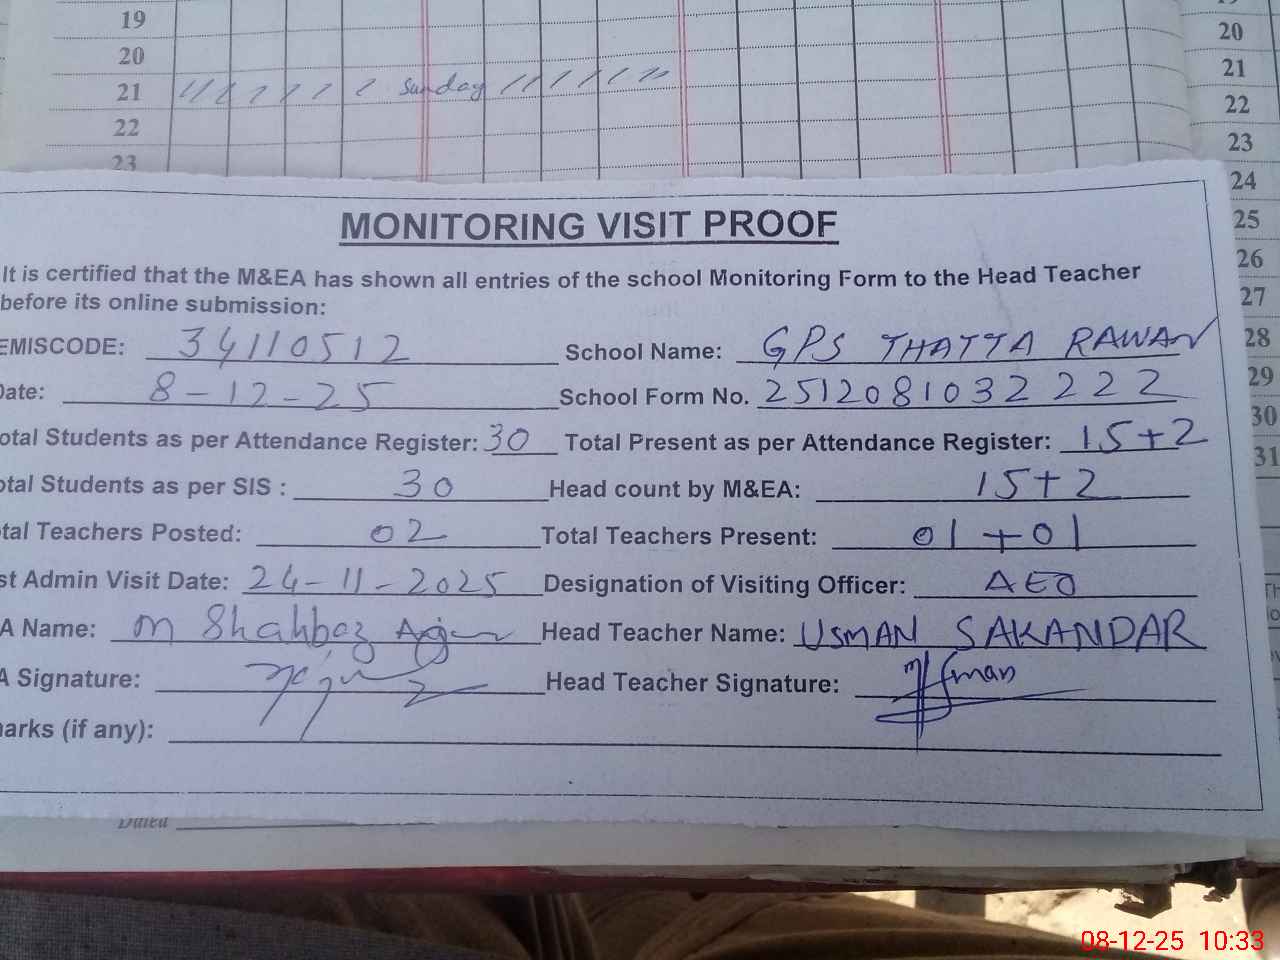 19
20
21 Sunday
22
23
19
20
21
22
23
24
25
26
27
28
29
30
31
MONITORING VISIT PROOF
It is certified that the M&EA has shown all entries of the school Monitoring Form to the Head Teacher
before its online submission:
EMISCODE: 34110512 School Name: GPS THATTA RAWAN
Date: 8-12-25 School Form No. 2512081032222
otal Students as per Attendance Register: 30 Total Present as per Attendance Register: 15+2
otal Students as per SIS : 30 Head count by M&EA: 15+2
tal Teachers Posted: 02 Total Teachers Present: 01+01
st Admin Visit Date: 24-11-2025 Designation of Visiting Officer: AEO
A Name: M Shahbaz Head Teacher Name: USMAN SAKANDAR
A Signature: Head Teacher Signature:
arks (if any):
Dated
08-12-25 10:33